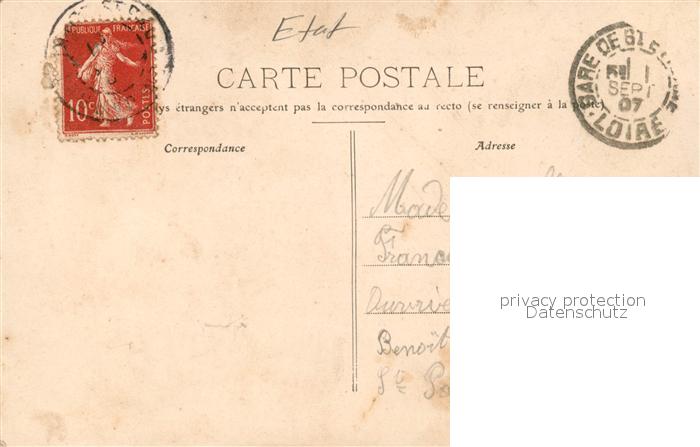 Etat
RÉPUBLIQUE FRANÇAISE
10c POSTES
CARTE POSTALE
ys étrangers n'acceptent pas la correspondance au recto (se renseigner à la poste)
GARE DE
1
SEPT
07
LOIRE
Correspondance
Adresse
Made
Franc
Ouvriè
Benoît
St
privacy protection
Datenschutz